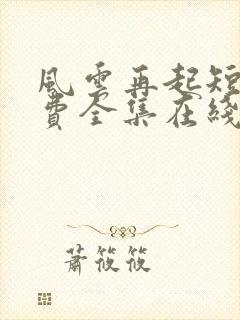 風雲再起短
費全集在綫
蕭筱筱